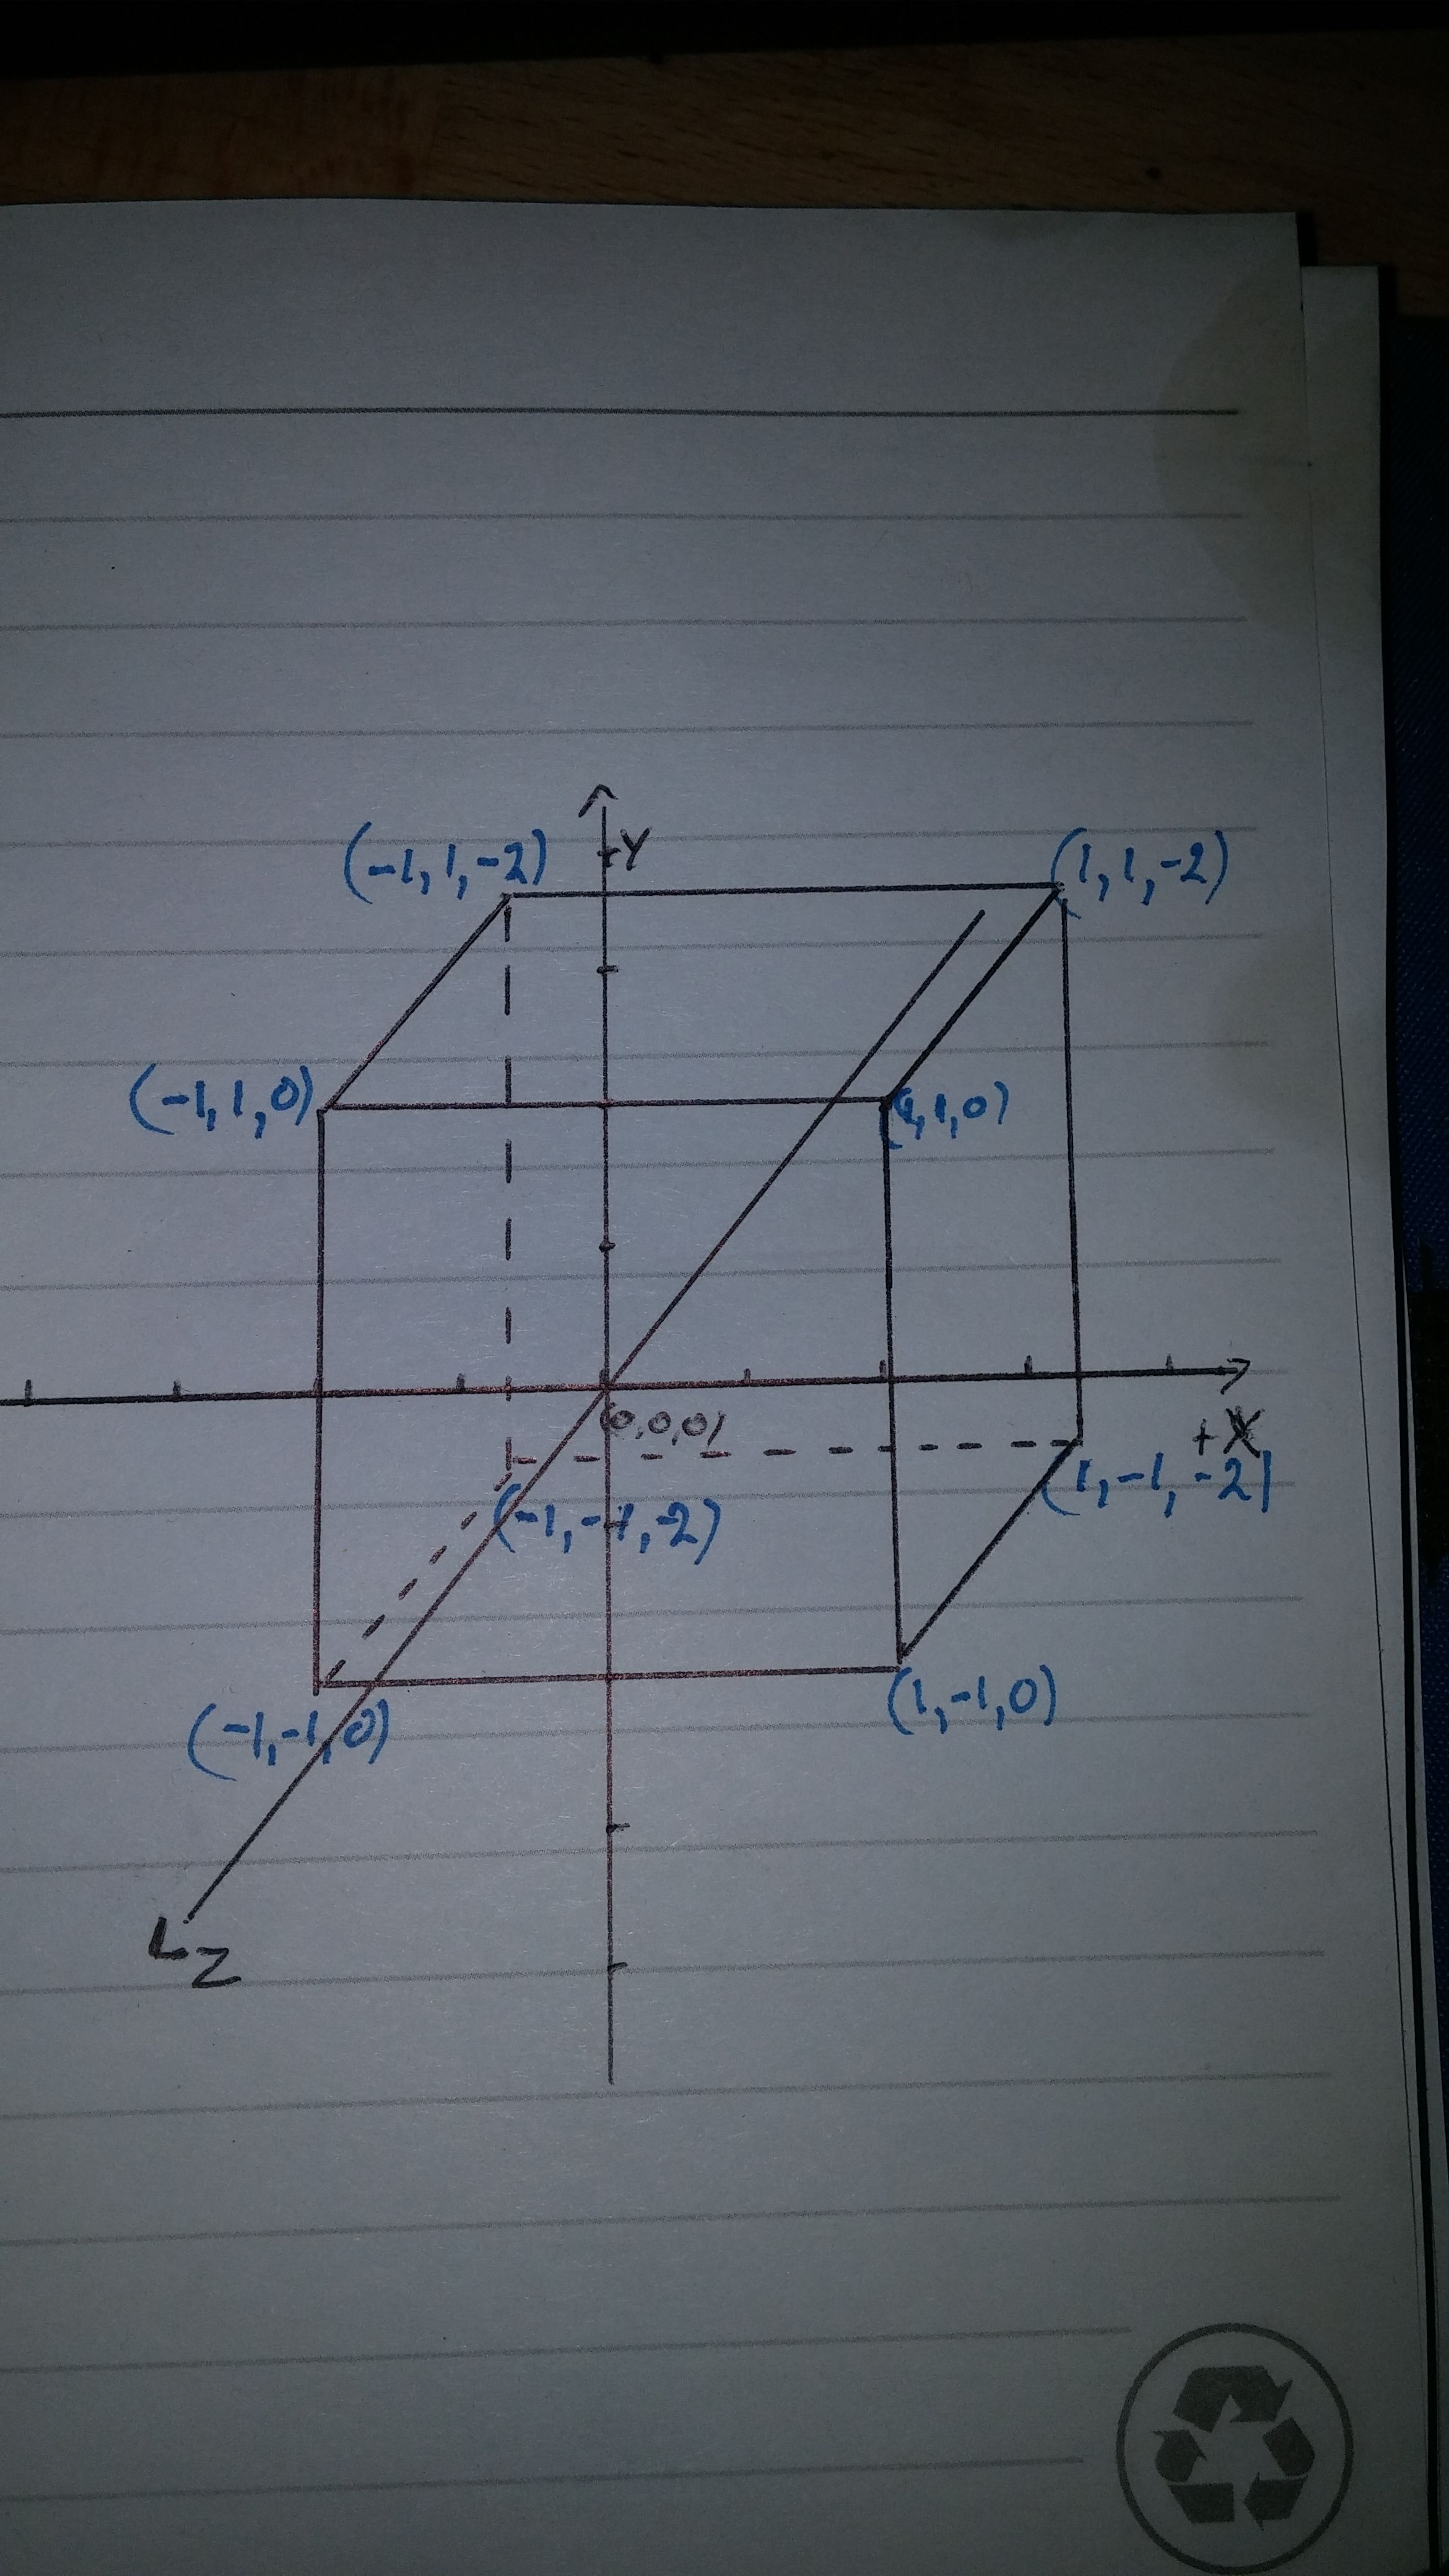 Y
(-1,1,-2)
(1,1,-2)
(-1,1,0)
(1,1,0)
(0,0,0)
+X
(1,-1,-2)
(-1,-1,-2)
(1,-1,0)
(-1,-1,0)
Z